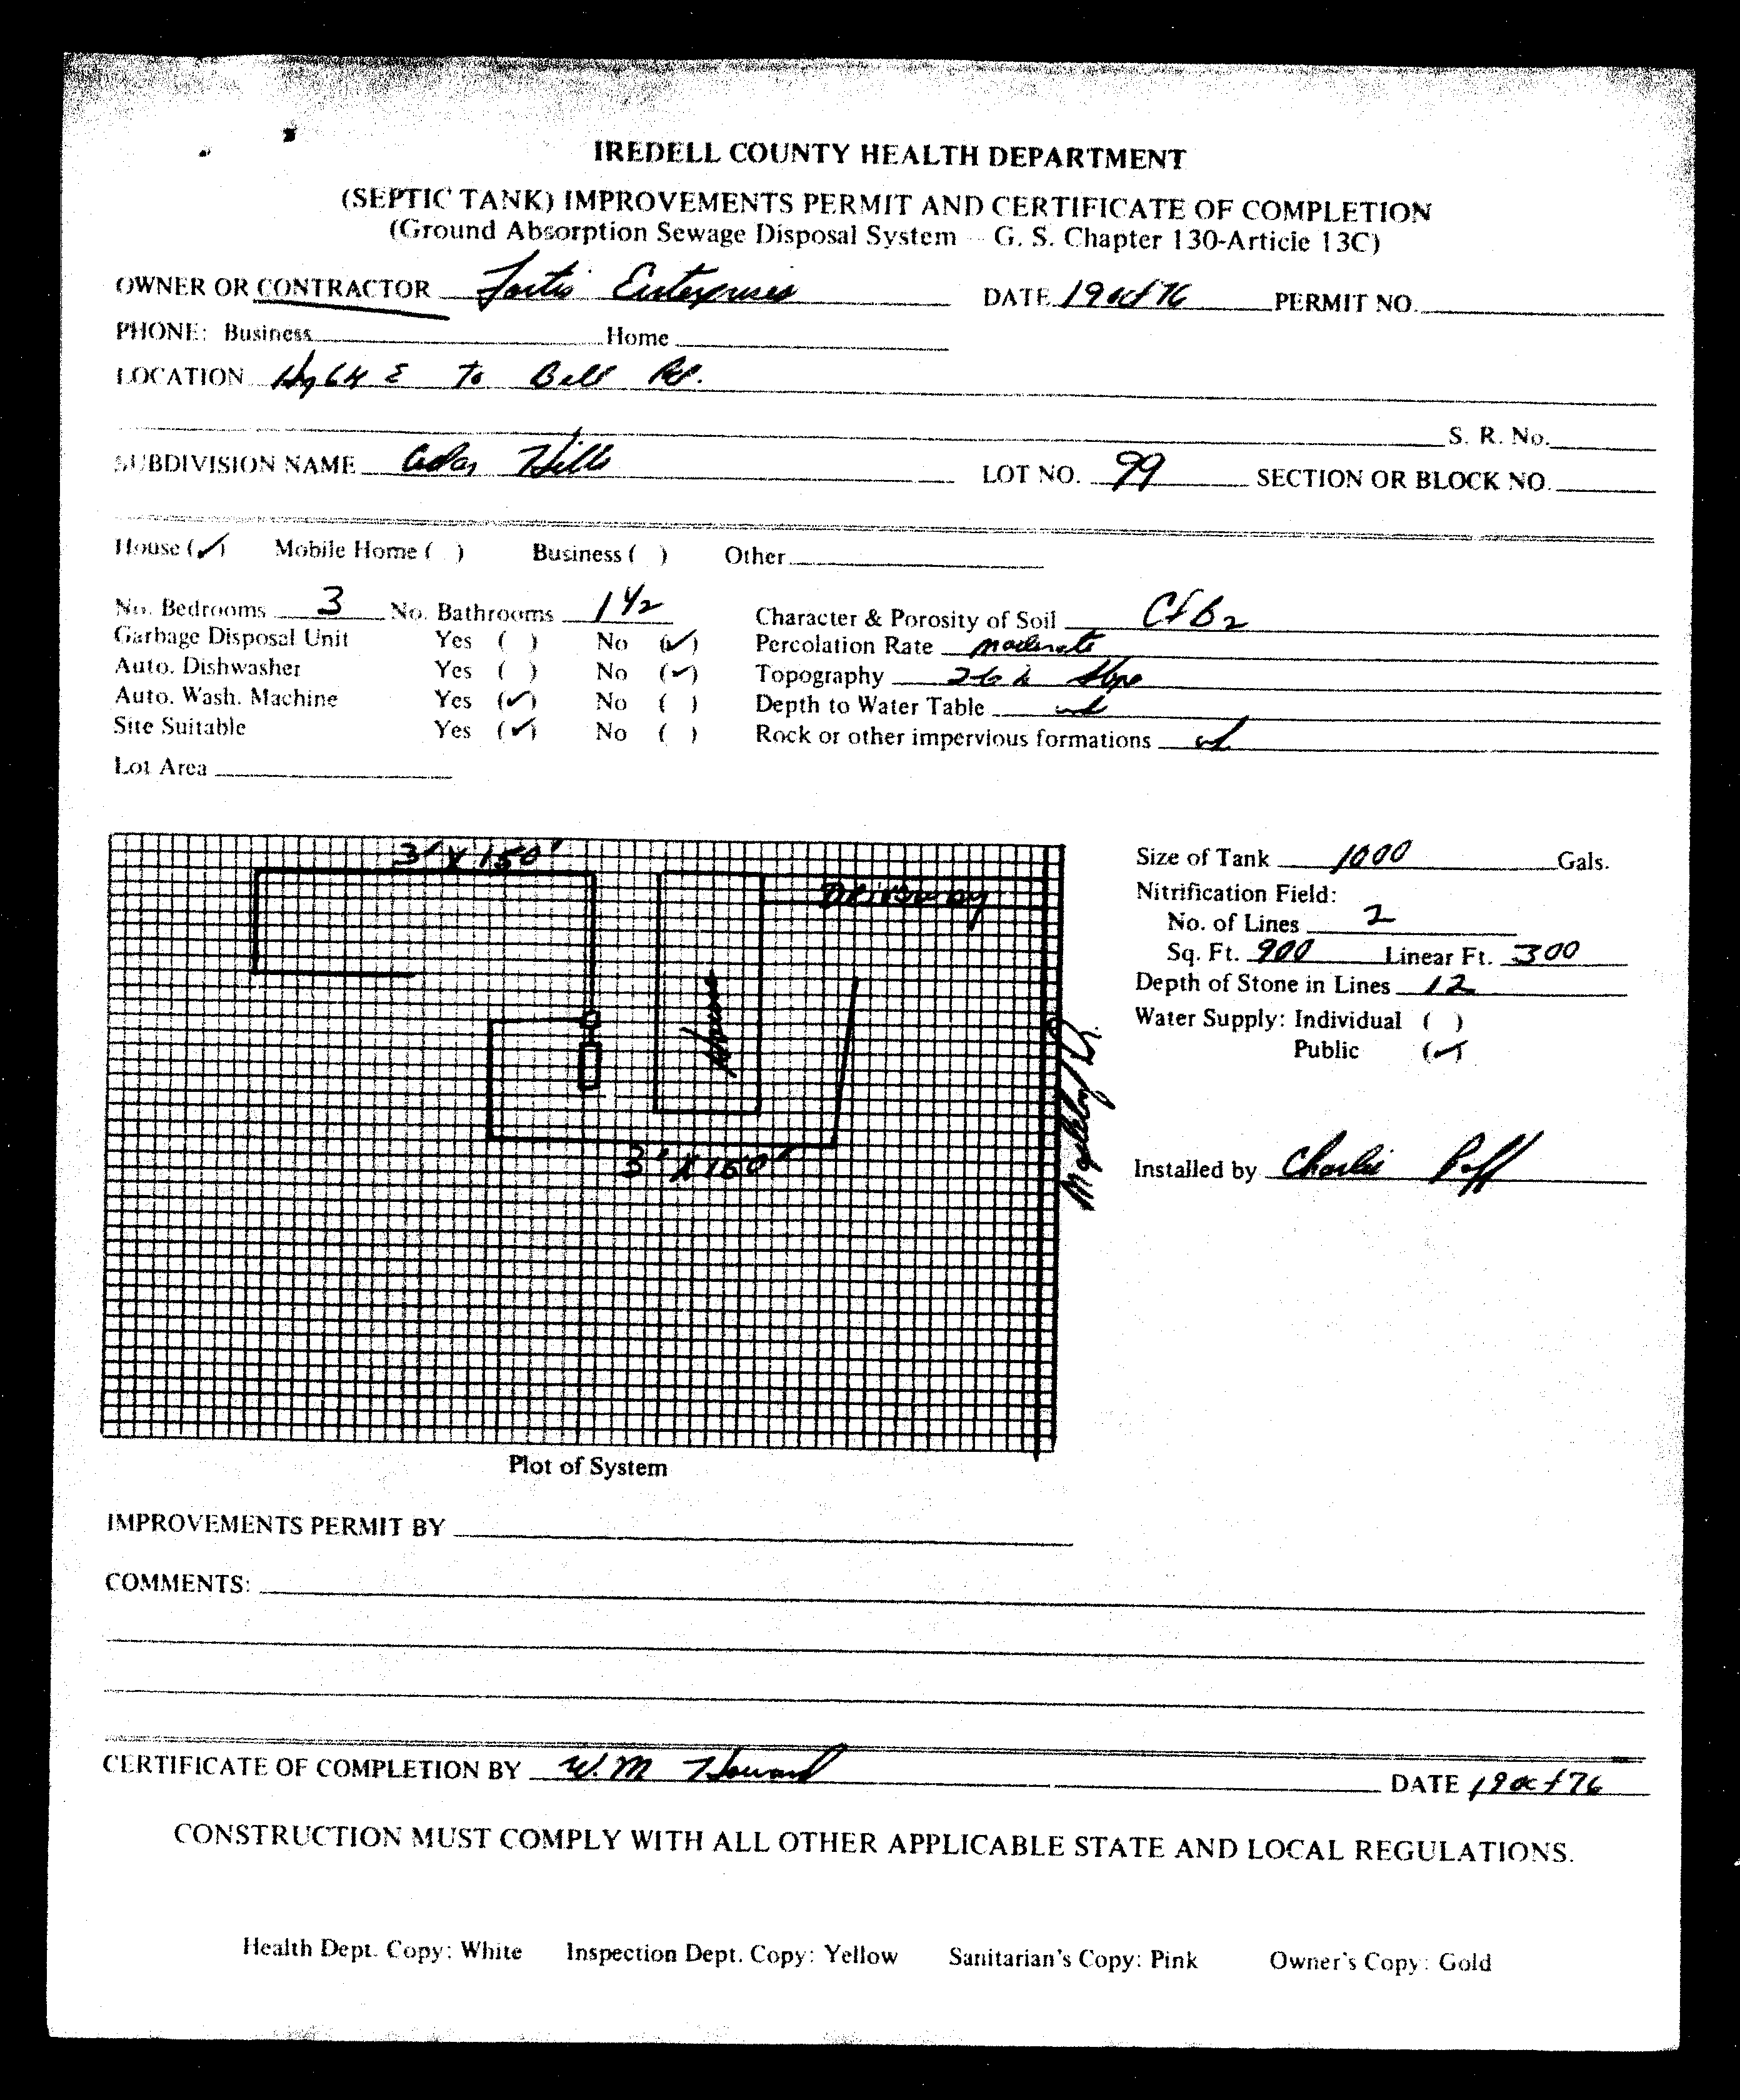 IREDELL COUNTY HEALTH DEPARTMENT
(SEPTIC TANK) IMPROVEMENTS PERMIT AND CERTIFICATE OF COMPLETION
(Ground Absorption Sewage Disposal System - G. S. Chapter 130-Article 13C)
OWNER OR CONTRACTOR Enterprises DATE 19 Oct 76 PERMIT NO.
PHONE: Business Home
LOCATION Hy 64 E to Bell Rd.
S. R. No.
SUBDIVISION NAME Cedar Hills LOT NO. 99 SECTION OR BLOCK NO.
House (✓) Mobile Home ( ) Business ( ) Other
No. Bedrooms 3 No. Bathrooms 1 1/2 Character & Porosity of Soil CfB2
Garbage Disposal Unit Yes ( ) No (✓) Percolation Rate moderate
Auto. Dishwasher Yes ( ) No (✓) Topography slope
Auto. Wash. Machine Yes (✓) No ( ) Depth to Water Table
Site Suitable Yes (✓) No ( ) Rock or other impervious formations
Lot Area
3' X 150'
Driveway
House
3' X 150'
Size of Tank 1000 Gals.
Nitrification Field:
No. of Lines 2
Sq. Ft. 900 Linear Ft. 300
Depth of Stone in Lines 12
Water Supply: Individual ( )
Public (✓)
Installed by Charlie Poff
Plot of System
IMPROVEMENTS PERMIT BY
COMMENTS:
CERTIFICATE OF COMPLETION BY W. M Howard DATE 19 Oct 76
CONSTRUCTION MUST COMPLY WITH ALL OTHER APPLICABLE STATE AND LOCAL REGULATIONS.
Health Dept. Copy: White Inspection Dept. Copy: Yellow Sanitarian's Copy: Pink Owner's Copy: Gold